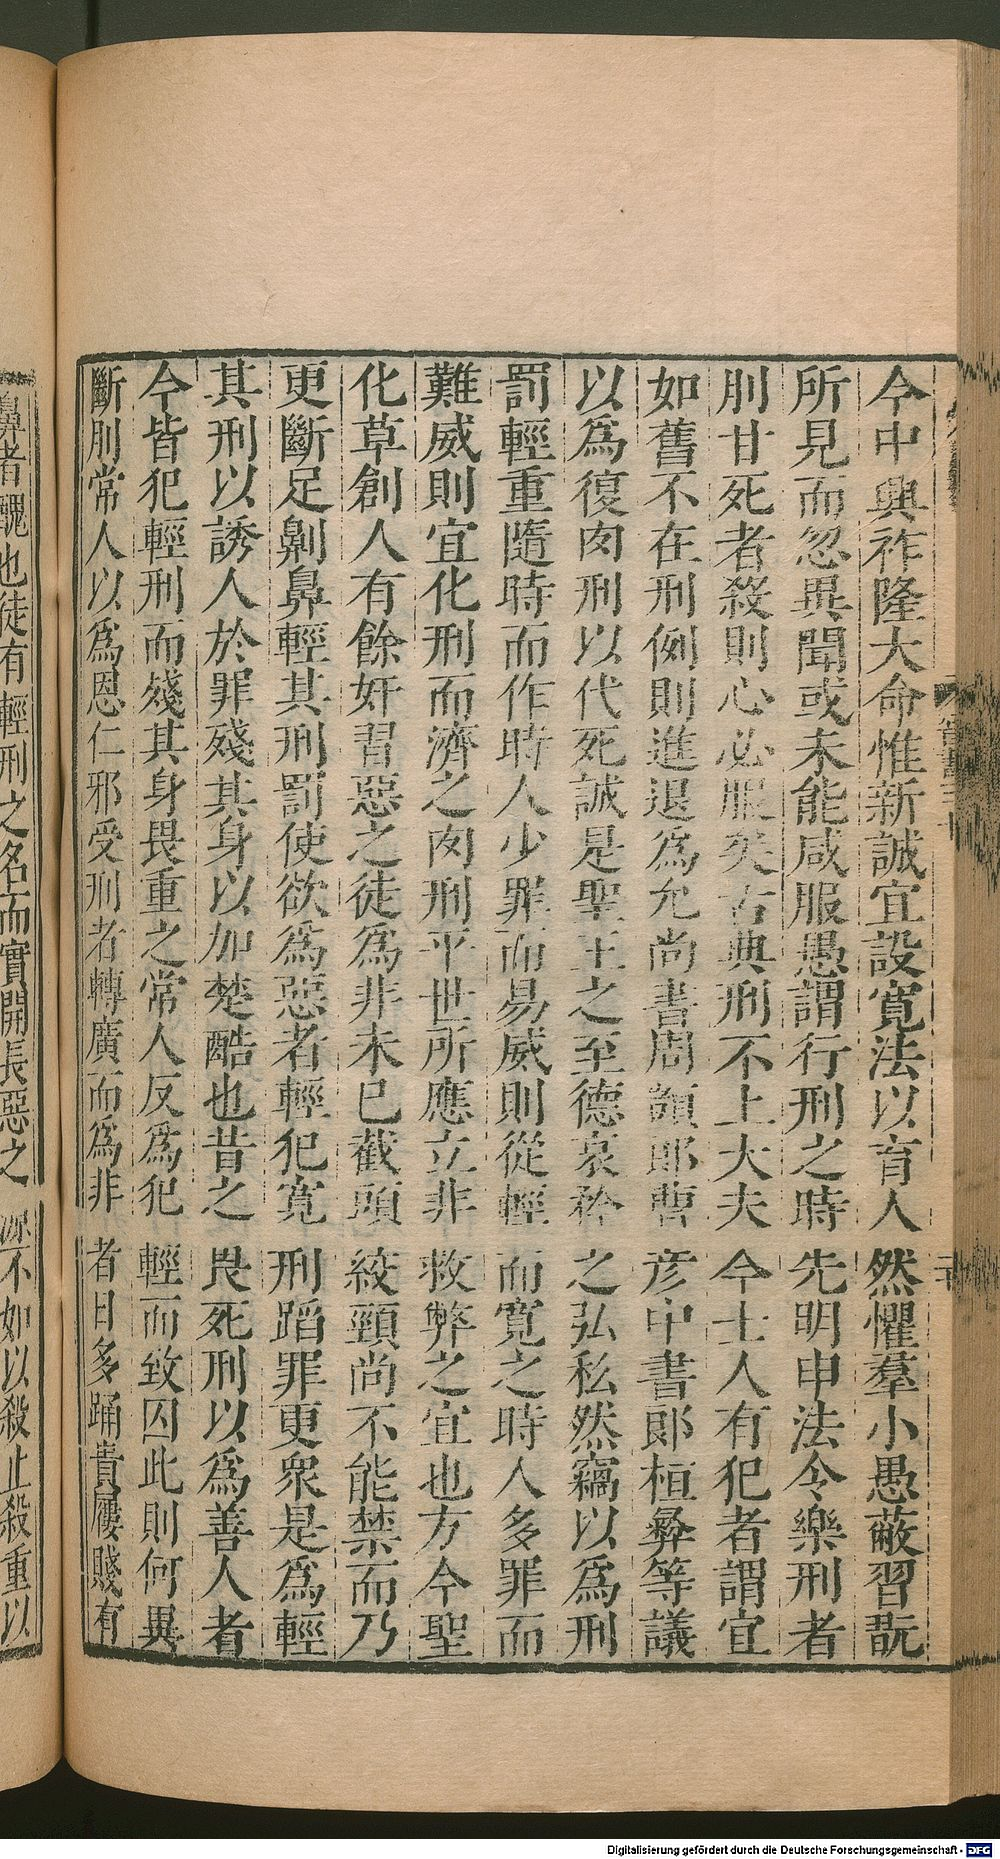 今中興祚隆大命惟新誠宜設寛法以育人然懼羣小愚蔽習翫
所見而忽異聞或未能咸服愚謂行刑之時先明申法令樂刑者
刖甘死者殺則心必服矣古典刑不上大夫今士人有犯者謂宜
如舊不在刑例則進退爲允尚書周顗郎曹彦中書郎桓彝等議
以爲復肉刑以代死誠是聖王之至德哀矜之弘私然竊以爲刑
罰輕重隨時而作時人少罪而易威則從輕而寛之時人多罪而
難威則宜化刑而濟之肉刑平世所應立非救弊之宜也方今聖
化草創人有餘奸習惡之徒爲非未已截頭絞頸尚不能禁而乃
更斷足劓鼻輕其刑罰使欲爲惡者輕犯寛刑蹈罪更衆是爲輕
其刑以誘人於罪殘其身以加楚酷也昔之畏死刑以爲善人者
今皆犯輕刑而殘其身畏重之常人反爲犯輕而致囚此則何異
斷刖常人以爲恩仁邪受刑者轉廣而爲非者日多踊貴屨賤有
鼻者醜也徒有輕刑之名而實開長惡之源不如以殺止殺重以
Digitalisierung gefördert durch die Deutsche Forschungsgemeinschaft - DFG